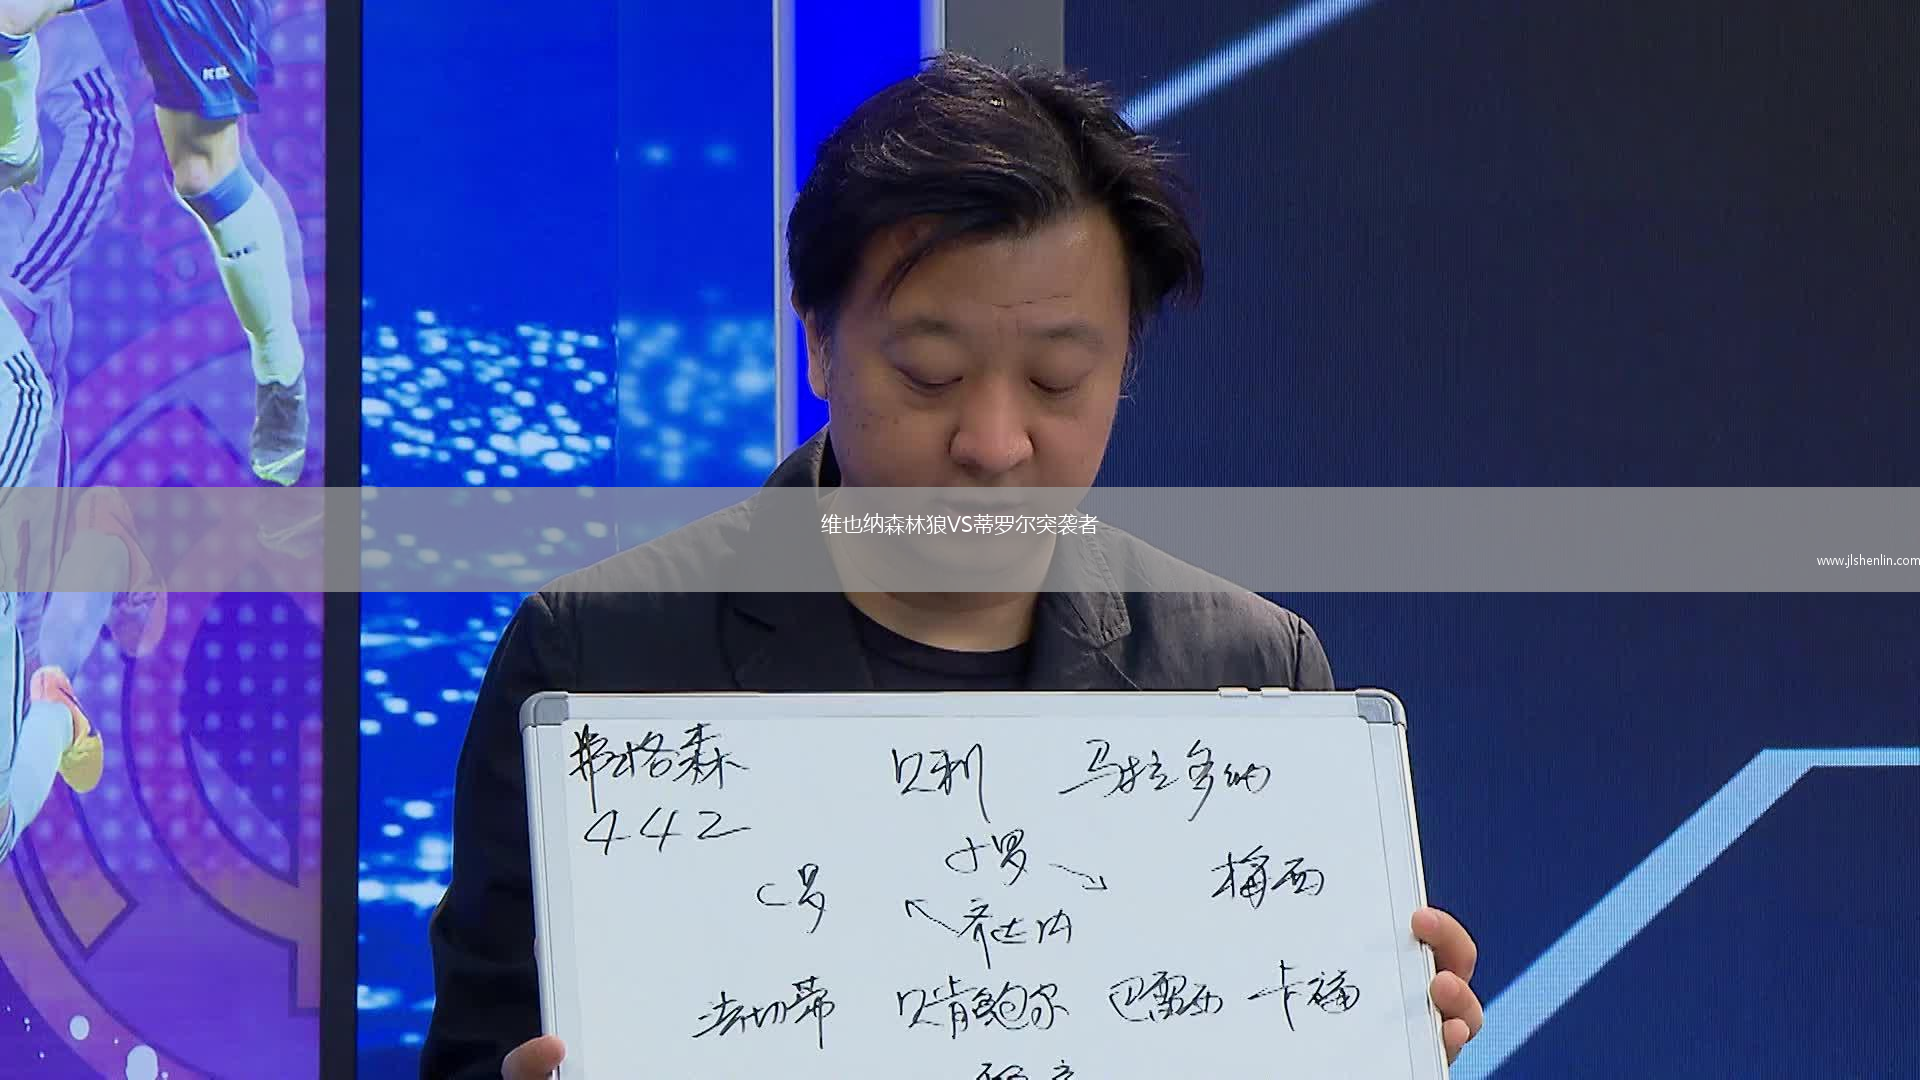 维也纳森林狼VS蒂罗尔突袭者
www.jlshenlin.com
弗格森 贝利 马拉多纳
442
小罗
C罗 梅西
齐达内
法切蒂 贝肯鲍尔 巴雷西 卡福